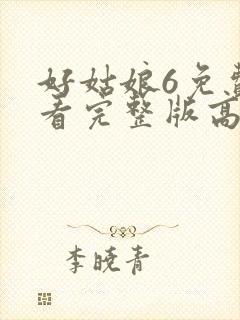 好姑娘6免費
看完整版高
李晓青